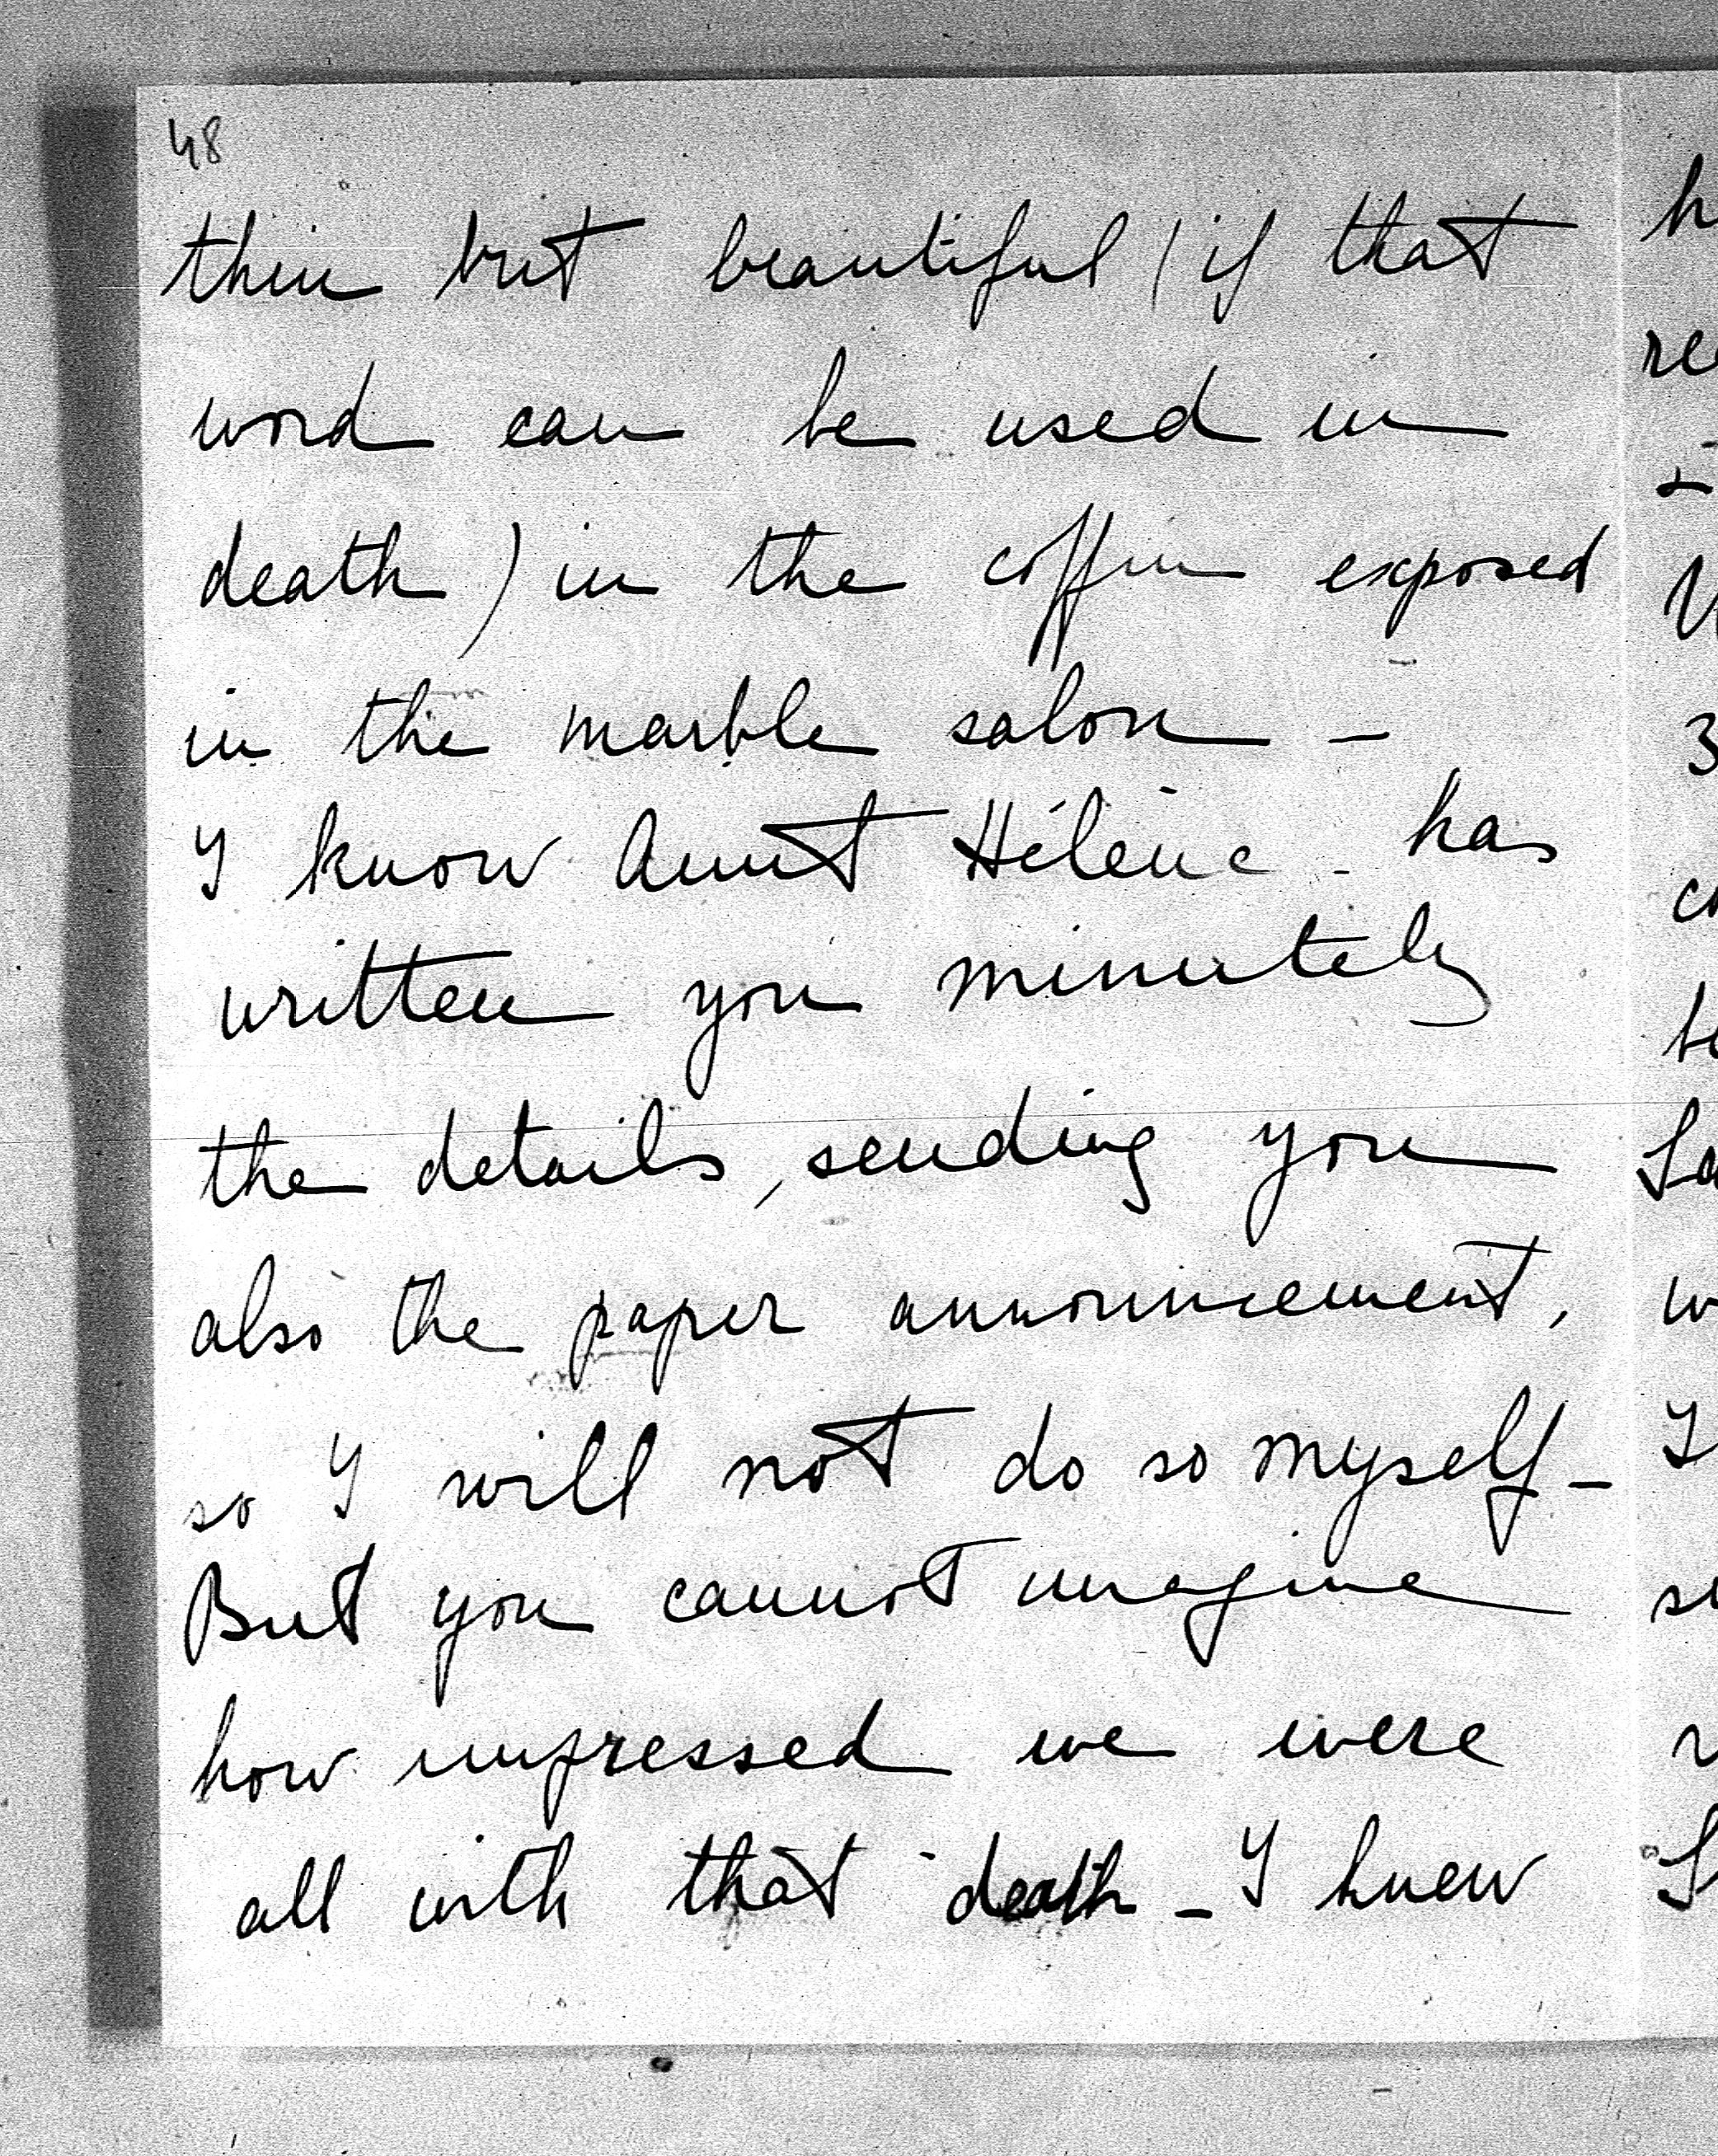 48
thin but beautiful (if that
word can be used in
death) in the coffin exposed
in the marble salon -
I know Aunt Hélène - has
written you minutely
the details, sending you
also the paper announcement,
so I will not do so myself -
But you cannot imagine
how impressed we were
all with that death - I knew